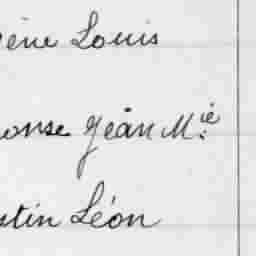 ène Louis
onse Jean M.ie
stin Léon